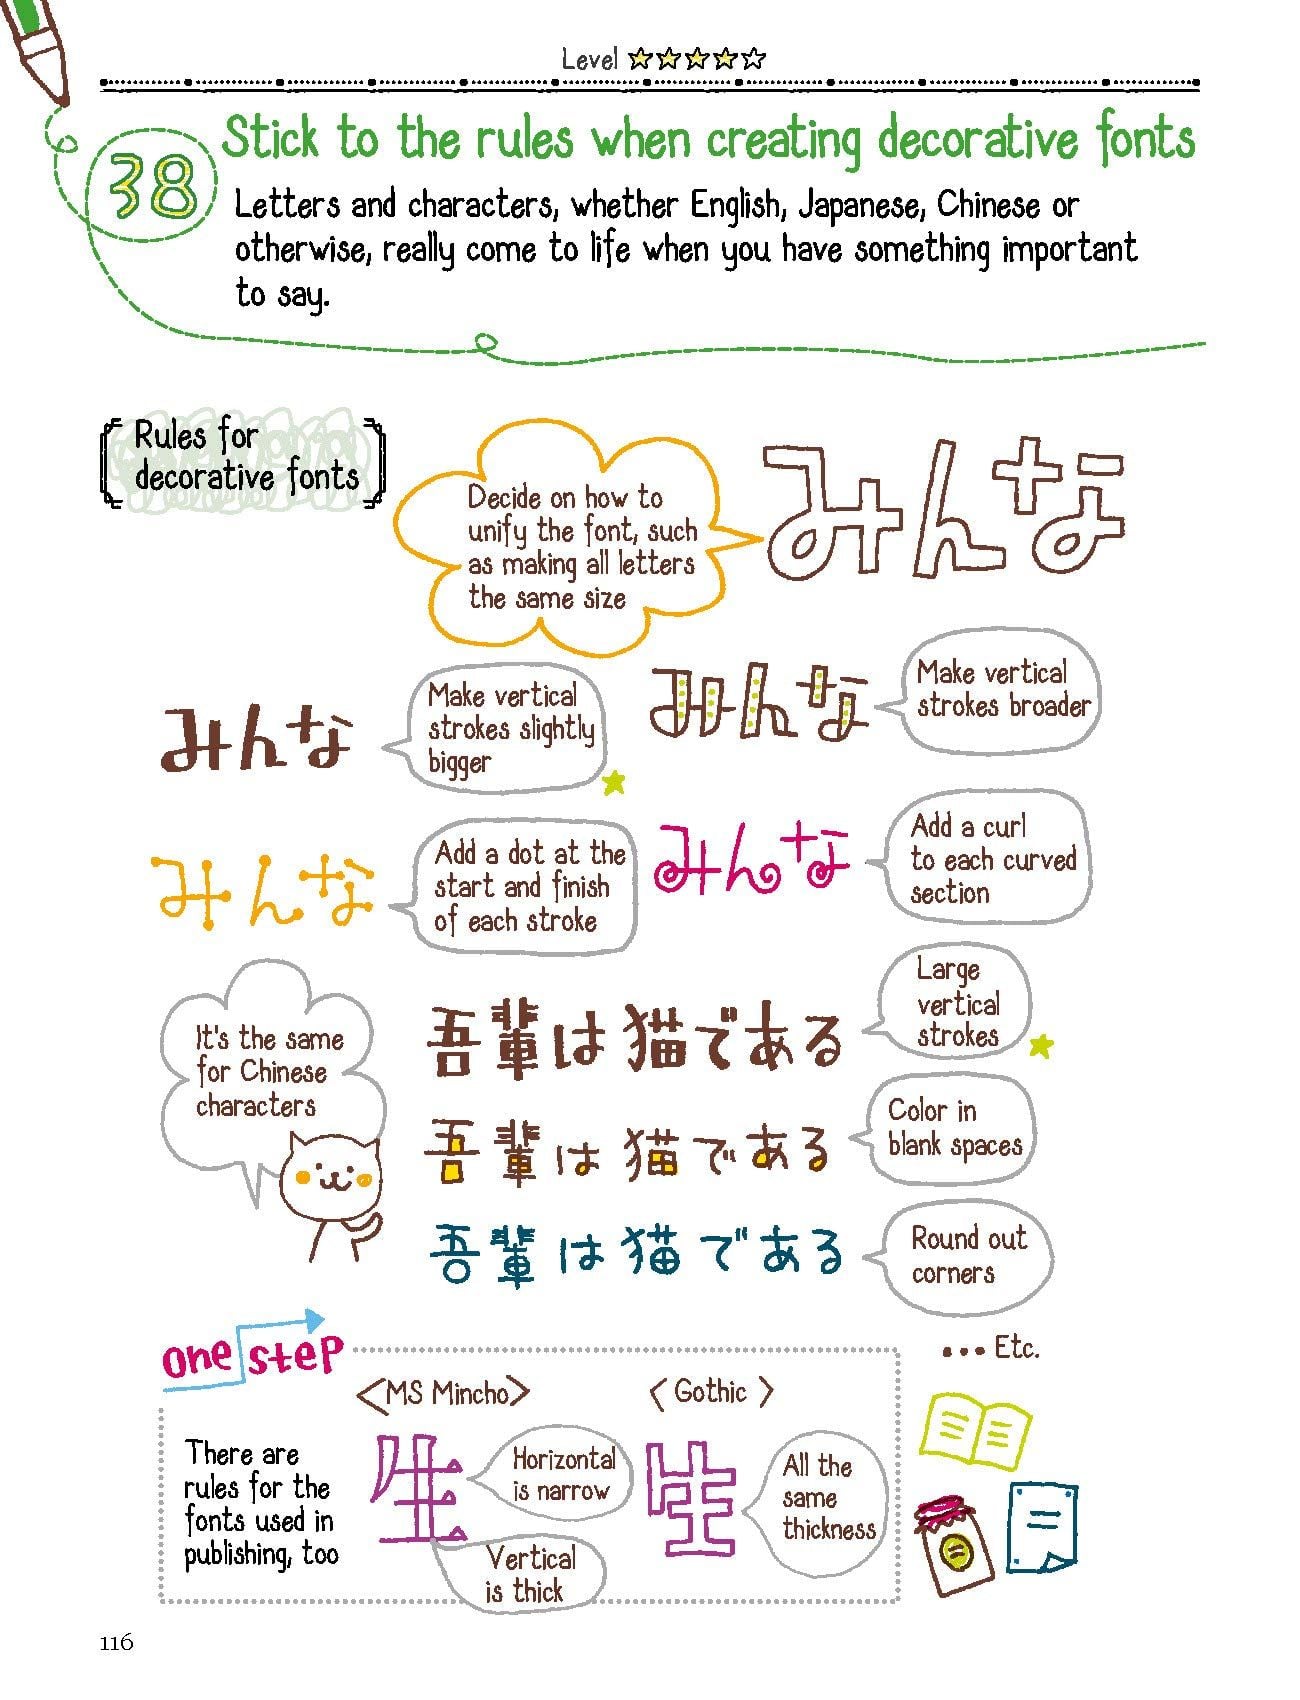 Level
38
Stick to the rules when creating decorative fonts
Letters and characters, whether English, Japanese, Chinese or
otherwise, really come to life when you have something important
to say.
Rules for
decorative fonts
Decide on how to
unify the font, such
as making all letters
the same size
みんな
みんな
Make vertical
strokes slightly
bigger
みんな
Make vertical
strokes broader
みんな
Add a dot at the
start and finish
of each stroke
みんな
Add a curl
to each curved
section
It's the same
for Chinese
characters
吾輩は猫である
Large
vertical
strokes
吾輩は猫である
Color in
blank spaces
吾輩は猫である
Round out
corners
... Etc.
one step
There are
rules for the
fonts used in
publishing, too
<MS Mincho>
生
Horizontal
is narrow
Vertical
is thick
〈 Gothic 〉
生
All the
same
thickness
116